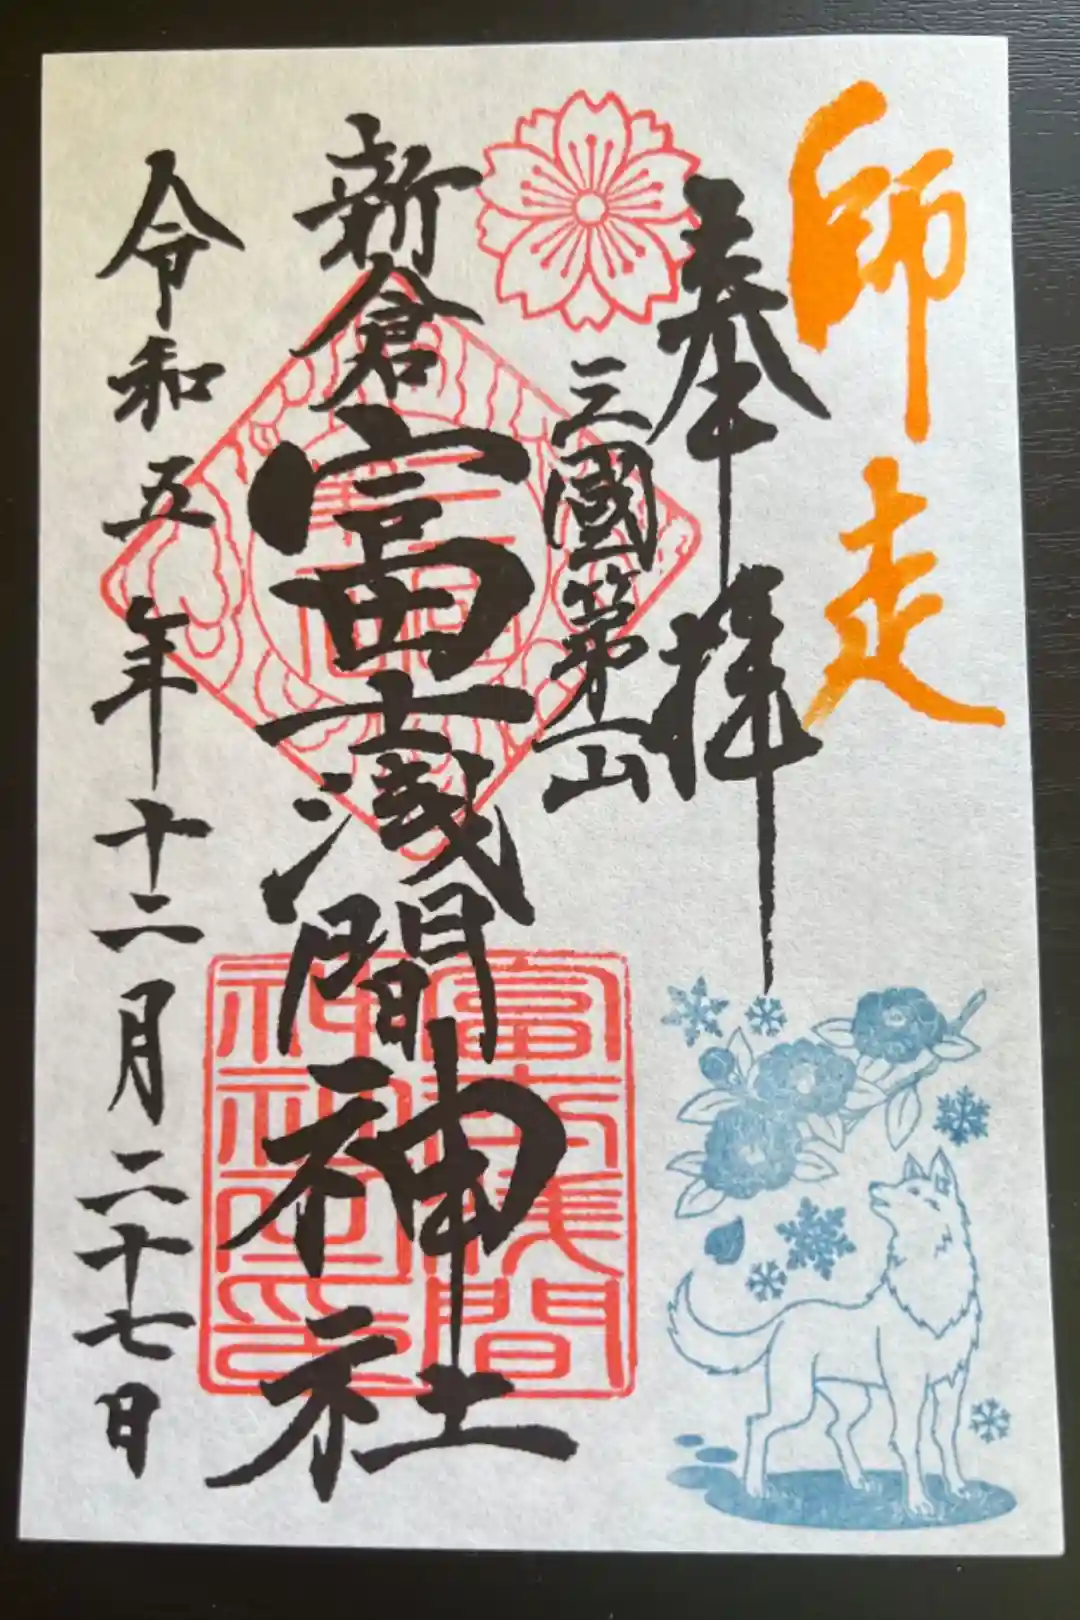 師走
奉拝
三國第一山
新倉富士浅間神社
冨士浅間
神社之印
令和五年十二月二十七日